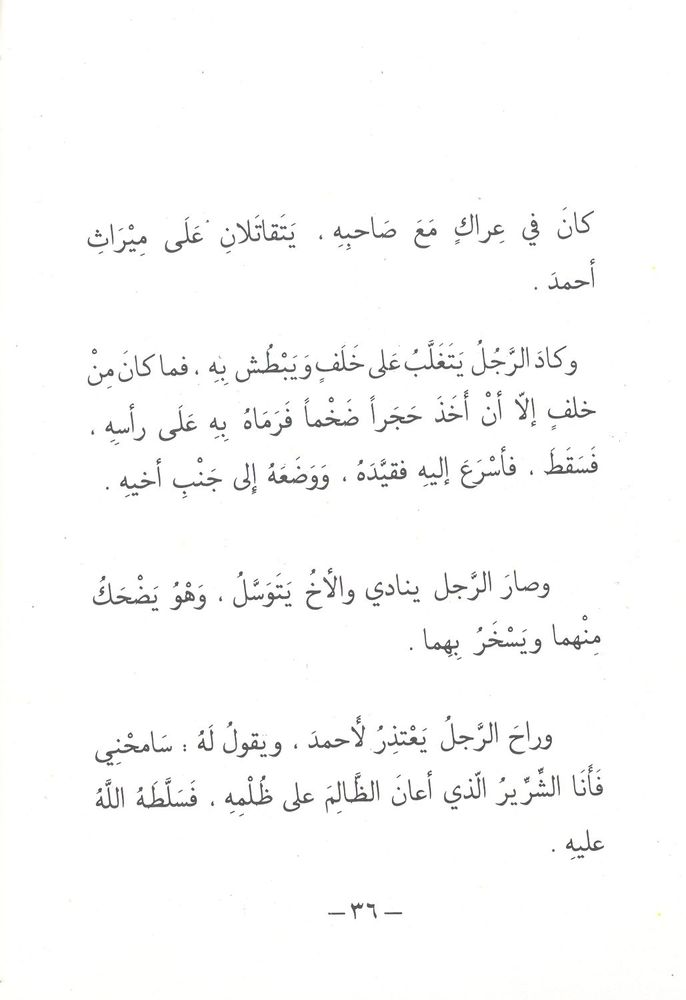 كانَ في عِراكٍ مَعَ صَاحبِهِ ، يَتَقاتَلانِ عَلَى مِيْرَاثِ
أحمدَ .
وكادَ الرَّجُلُ يَتَغَلَّبُ عَلى خَلَفٍ وَيَبْطُش بِهِ ، فما كانَ مِنْ
خلفٍ إلاّ أنْ أَخَذَ حَجَراً ضَخْماً فَرَمَاهُ بِهِ عَلَى رأسِهِ ،
فَسَقَطَ ، فأسْرَعَ إليهِ فقيَّدَهُ ، وَوَضَعَهُ إِلى جَنْبِ أخيهِ .
وصارَ الرَّجل ينادي والأخُ يَتَوَسَّلُ ، وَهْوُ يَضْحَكُ
مِنْهما ويَسْخَرُ بِهِما .
وراحَ الرَّجلُ يَعْتذِرُ لأَحمدَ ، ويقولُ لَهُ : سَامحْنِي
فَأَنَا الشِّرِّيرُ الّذي أعانَ الظَّالِمَ على ظُلْمِهِ ، فَسَلَّطَهُ اللَّهُ
عليهِ .
– ٣٦ –